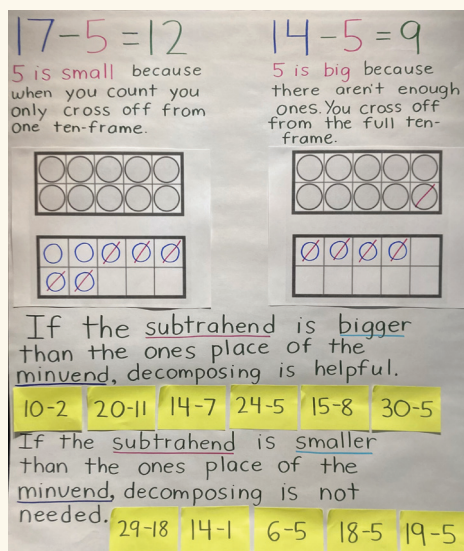 17-5=12
5 is small because
when you count you
only cross off from
one ten-frame.
14-5=9
5 is big because
there aren't enough
ones. You cross off
from the full ten-
frame.
If the subtrahend is bigger
than the ones place of the
minuend, decomposing is helpful.
10-2 20-11 14-7 24-5 15-8 30-5
If the subtrahend is smaller
than the ones place of the
minuend, decomposing is not
needed.
29-18 14-1 6-5 18-5 19-5